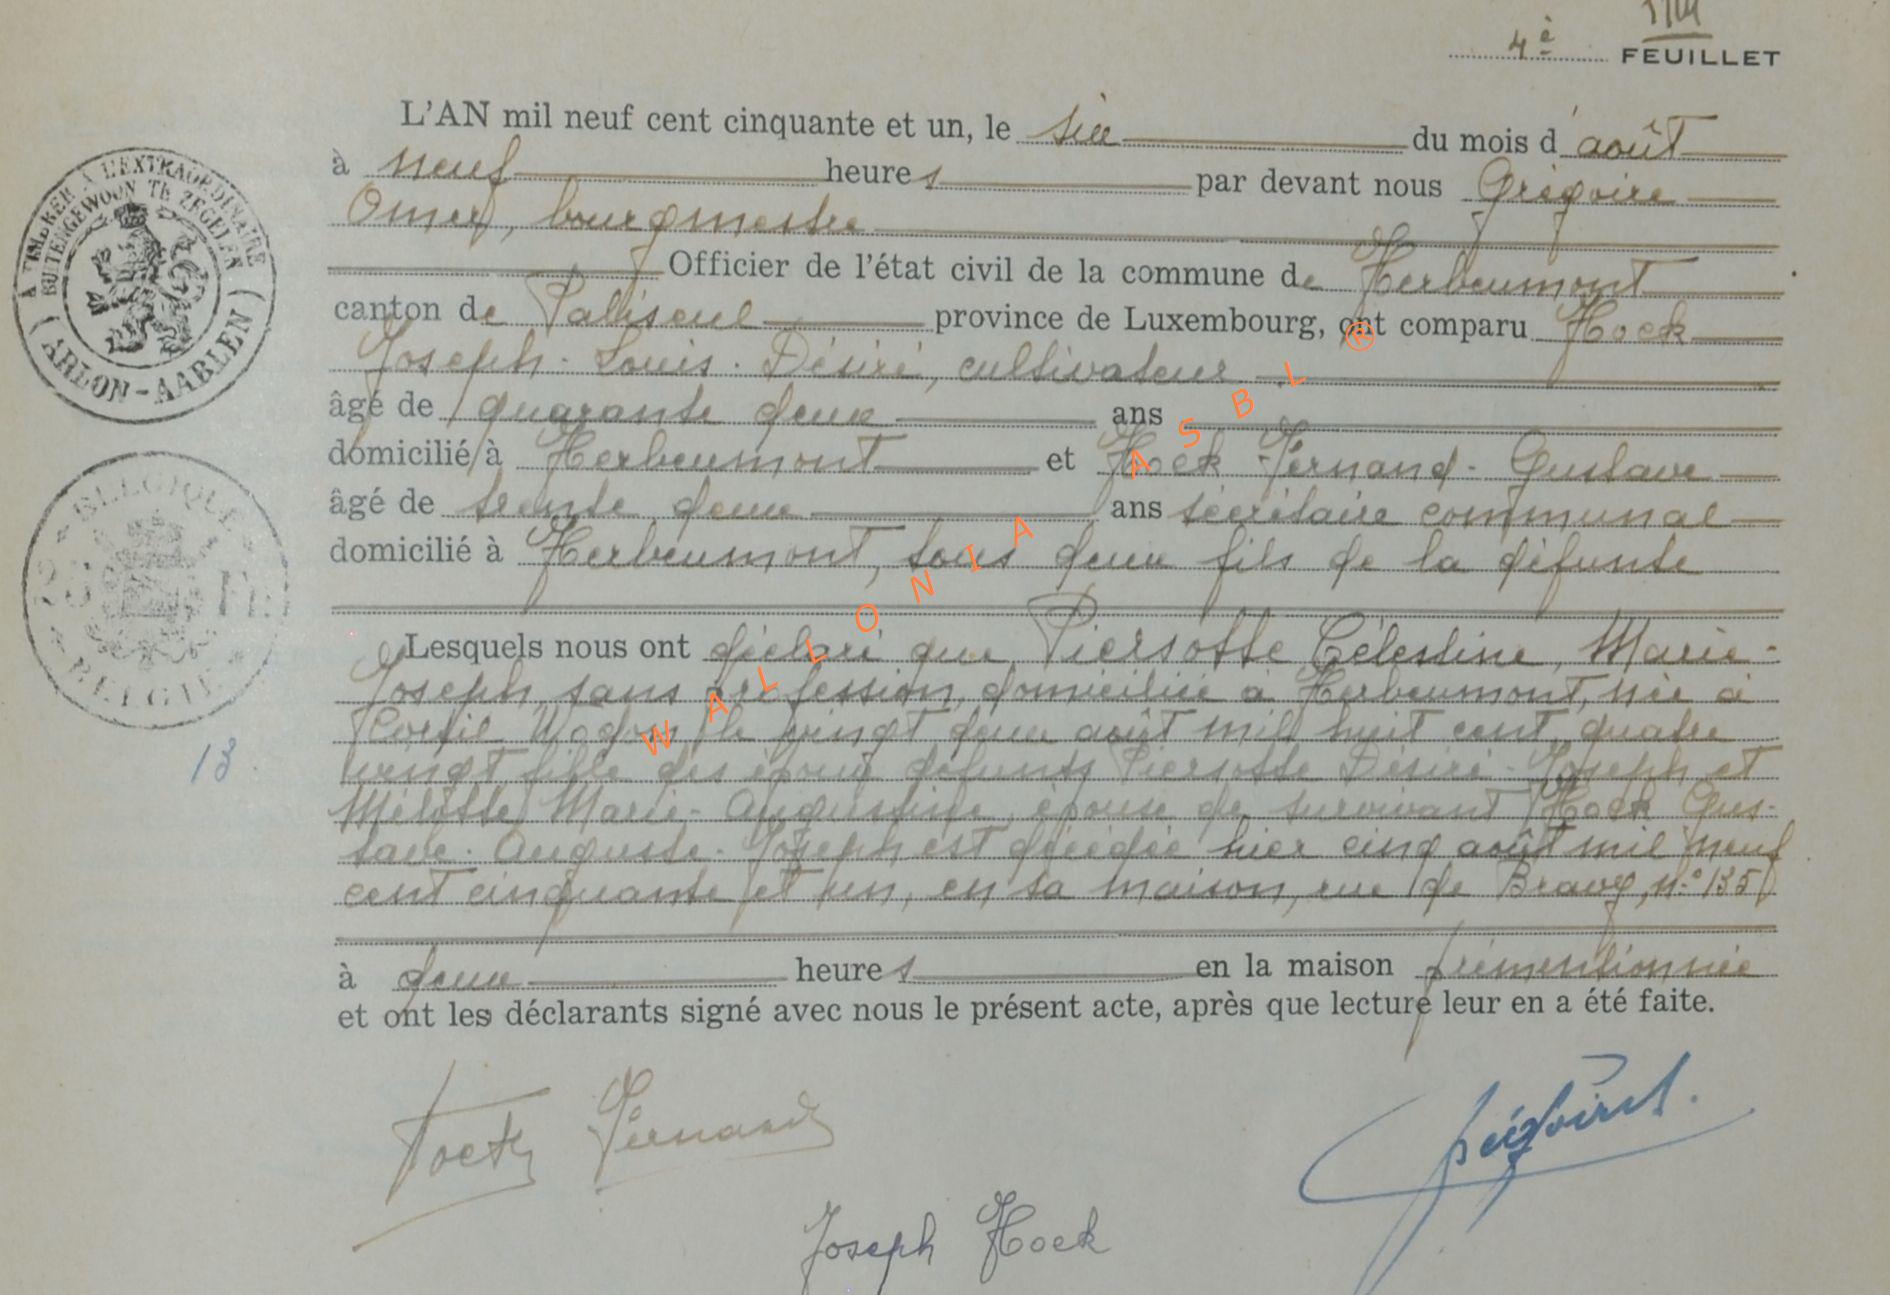 4è FEUILLET
L'AN mil neuf cent cinquante et un, le six du mois d'août
à neuf heures par devant nous Grégoire
Omer, bourgmestre
Officier de l'état civil de la commune de Herbeumont
canton de Paliseul province de Luxembourg, ont comparu Hock
Joseph-Louis-Désiré, cultivateur
âgé de quarante deux ans
domicilié à Herbeumont et Hock Fernand-Gustave
âgé de trente deux ans secrétaire communal
domicilié à Herbeumont, tous deux fils de la défunte
Lesquels nous ont déclaré que Piersotte Célestine, Marie-
Joseph, sans profession, domiciliée à Herbeumont, née à
Cortil Wodon le vingt deux août mil huit cent quatre
vingt, fille des époux défunts Piersotte Désiré-Joseph et
Mélotte Marie-Augustine, épouse de survivant Hock Gus-
tave-Auguste-Joseph est décédée hier cinq août mil neuf
cent cinquante et un, en sa maison, rue de Bravy, n° 135
à deux heures en la maison prémentionnée
et ont les déclarants signé avec nous le présent acte, après que lecture leur en a été faite.
Hock Fernand
Grégoire
Joseph Hock
A TIMBRER A L'EXTRAORDINAIRE
BUITENGEWOON TE ZEGELEN
(ARLON-AARLEN)
BELGIQUE
BELGIE
13
WALLONIA ASBL ®